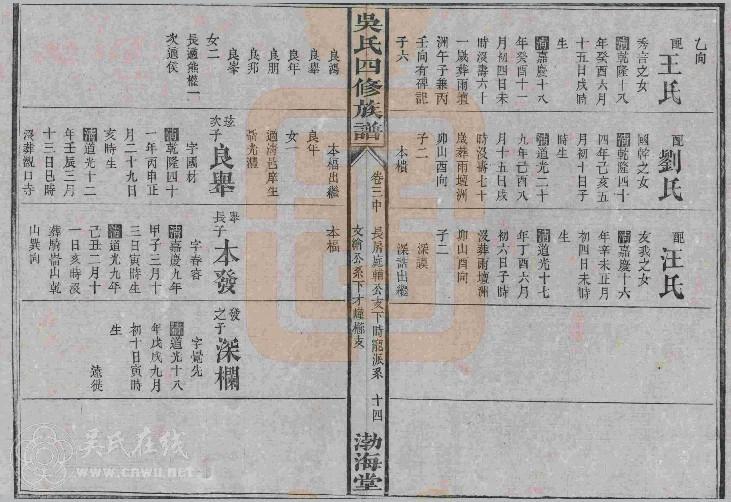 乙向
配
王氏
秀言之女
清乾隆十八
年癸酉六月
十五日戌時
生
清嘉慶十八
年癸酉十一
月初四日未
時沒壽六十
一歲葬雨壇
洲午子兼丙
壬向有碑記
子六
配
劉氏
國幹之女
清乾隆四十
四年己亥五
月初十日子
時生
清道光二十
九年己酉八
月十五日戌
時沒壽七十
歲葬雨壇洲
卯山酉向
子二
本櫝
配
汪氏
友我之女
清嘉慶十六
年辛未正月
初四日未時
生
清道光十七
年丁酉六月
初六日子時
沒葬雨壇洲
卯山酉向
子二
深謨
深誥出繼
吳氏四修族譜
卷三中
長房庭輔公支下時寵派系
文繪公系下才鐘樅支
十四
渤海堂
良鴻
良舉
良年
良朋
良邦
良峯
女二
長適熊懽二
次適侯
本楅出繼
良年
子二
本楅
女一
適清邑庠生
光灃
次子
良舉
字國材
清乾隆四十
一年丙申正
月二十九日
亥時生
清道光十二
年壬辰三月
十三日巳時
沒葬觀口寺
舉長子
本發
字春容
清嘉慶九年
甲子三月十
三日寅時生
清道光九年
己丑二月十
一日亥時沒
葬騎嵴山乾
山巽向
發之子
深欄
字覺先
清道光十八
年戊戌九月
初十日寅時
生
遠徙
吳氏在线
www.cnwu.net